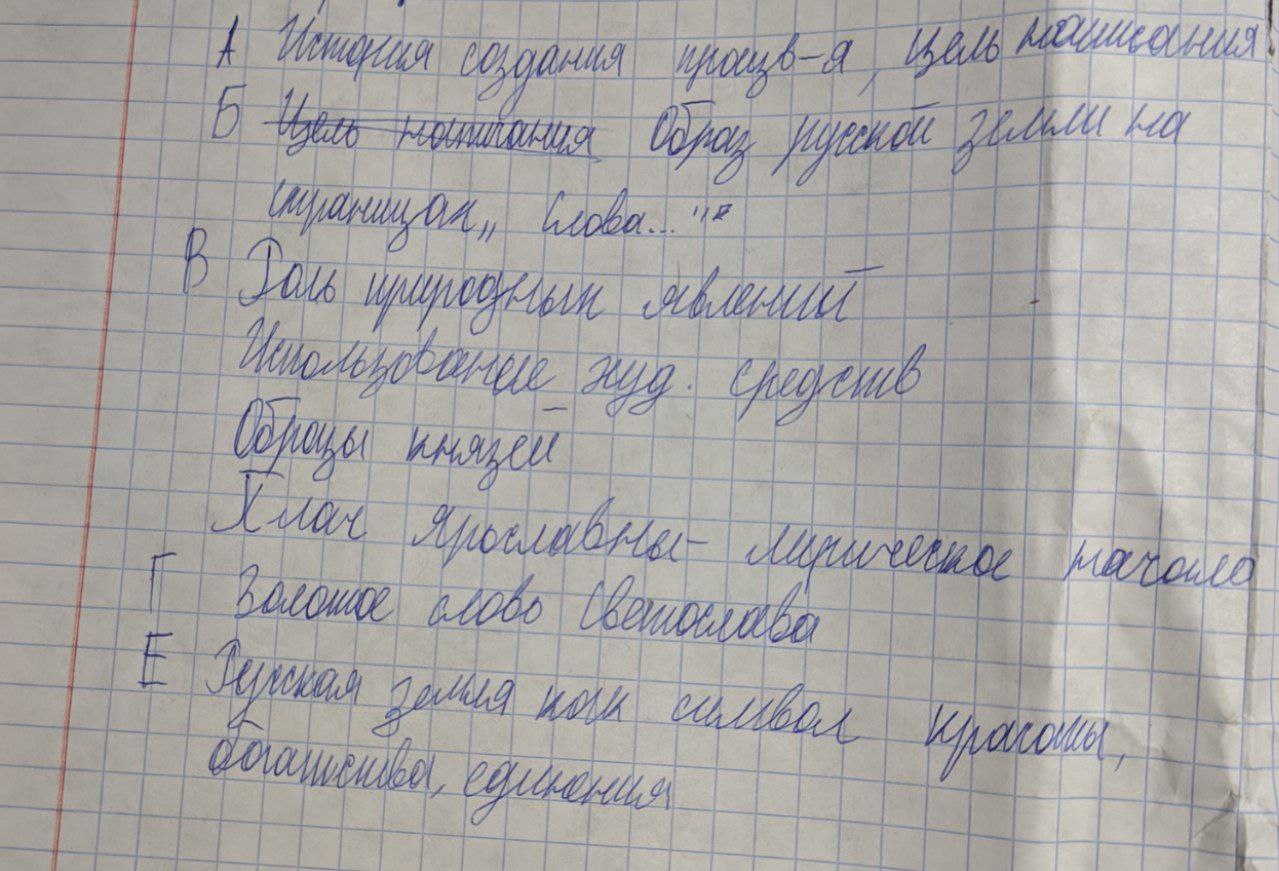 А История создания произв-я, цель написания
Б Цель написания Образ русской земли на
страницах „ Слова... "
В Роль природных явлений
Использование худ. средств
Образы князей
Плач Ярославны - лирическое начало
Г Золотое слово Святослава
Е Русская земля как символ красоты,
богатства, единения